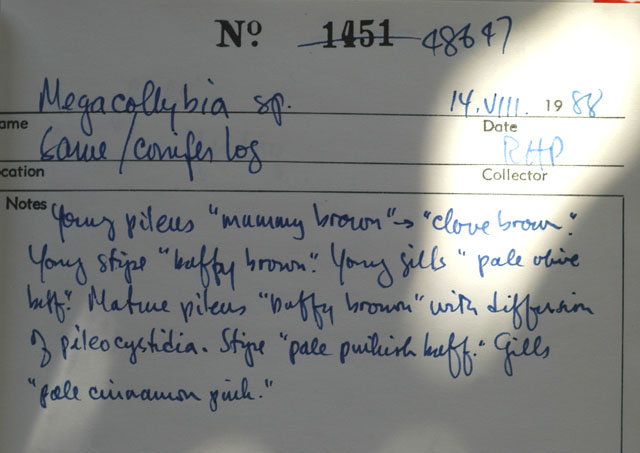 Nº 1451 48647
Megacollybia sp. 14.VIII. 1988
ame Date
Same/conifer log RHP
cation Collector
Notes Young pileus "mummy brown" → "clove brown."
Young stipe "buffy brown". Young gills "pale olive
buff." Mature pileus "buffy brown" with diffusion
of pileocystidia. Stipe "pale pinkish buff." Gills
"pale cinnamon pink."